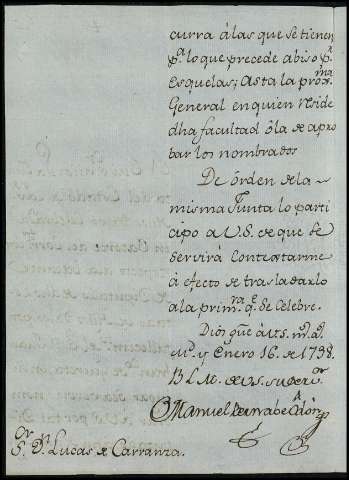 curra á las que se tienen
p.ª lo que precede abiso p.r
Esquelas; Asta la prox.ma
General en quien reside
dha facultad ó la de apro
bar los nombrados
De órden de la
misma Junta lo parti
cipo a V.S. de que se
servirá Contextarme
á efecto de trasladarlo
a la prim.ra q.e se Celebre.
Dios gûe á V.S. m.s a.s
y Enero 16. de 1798.
B L M. de V.S. su ser.or
Manuel Bernabe
S.or D.n Lucas de Carranza.